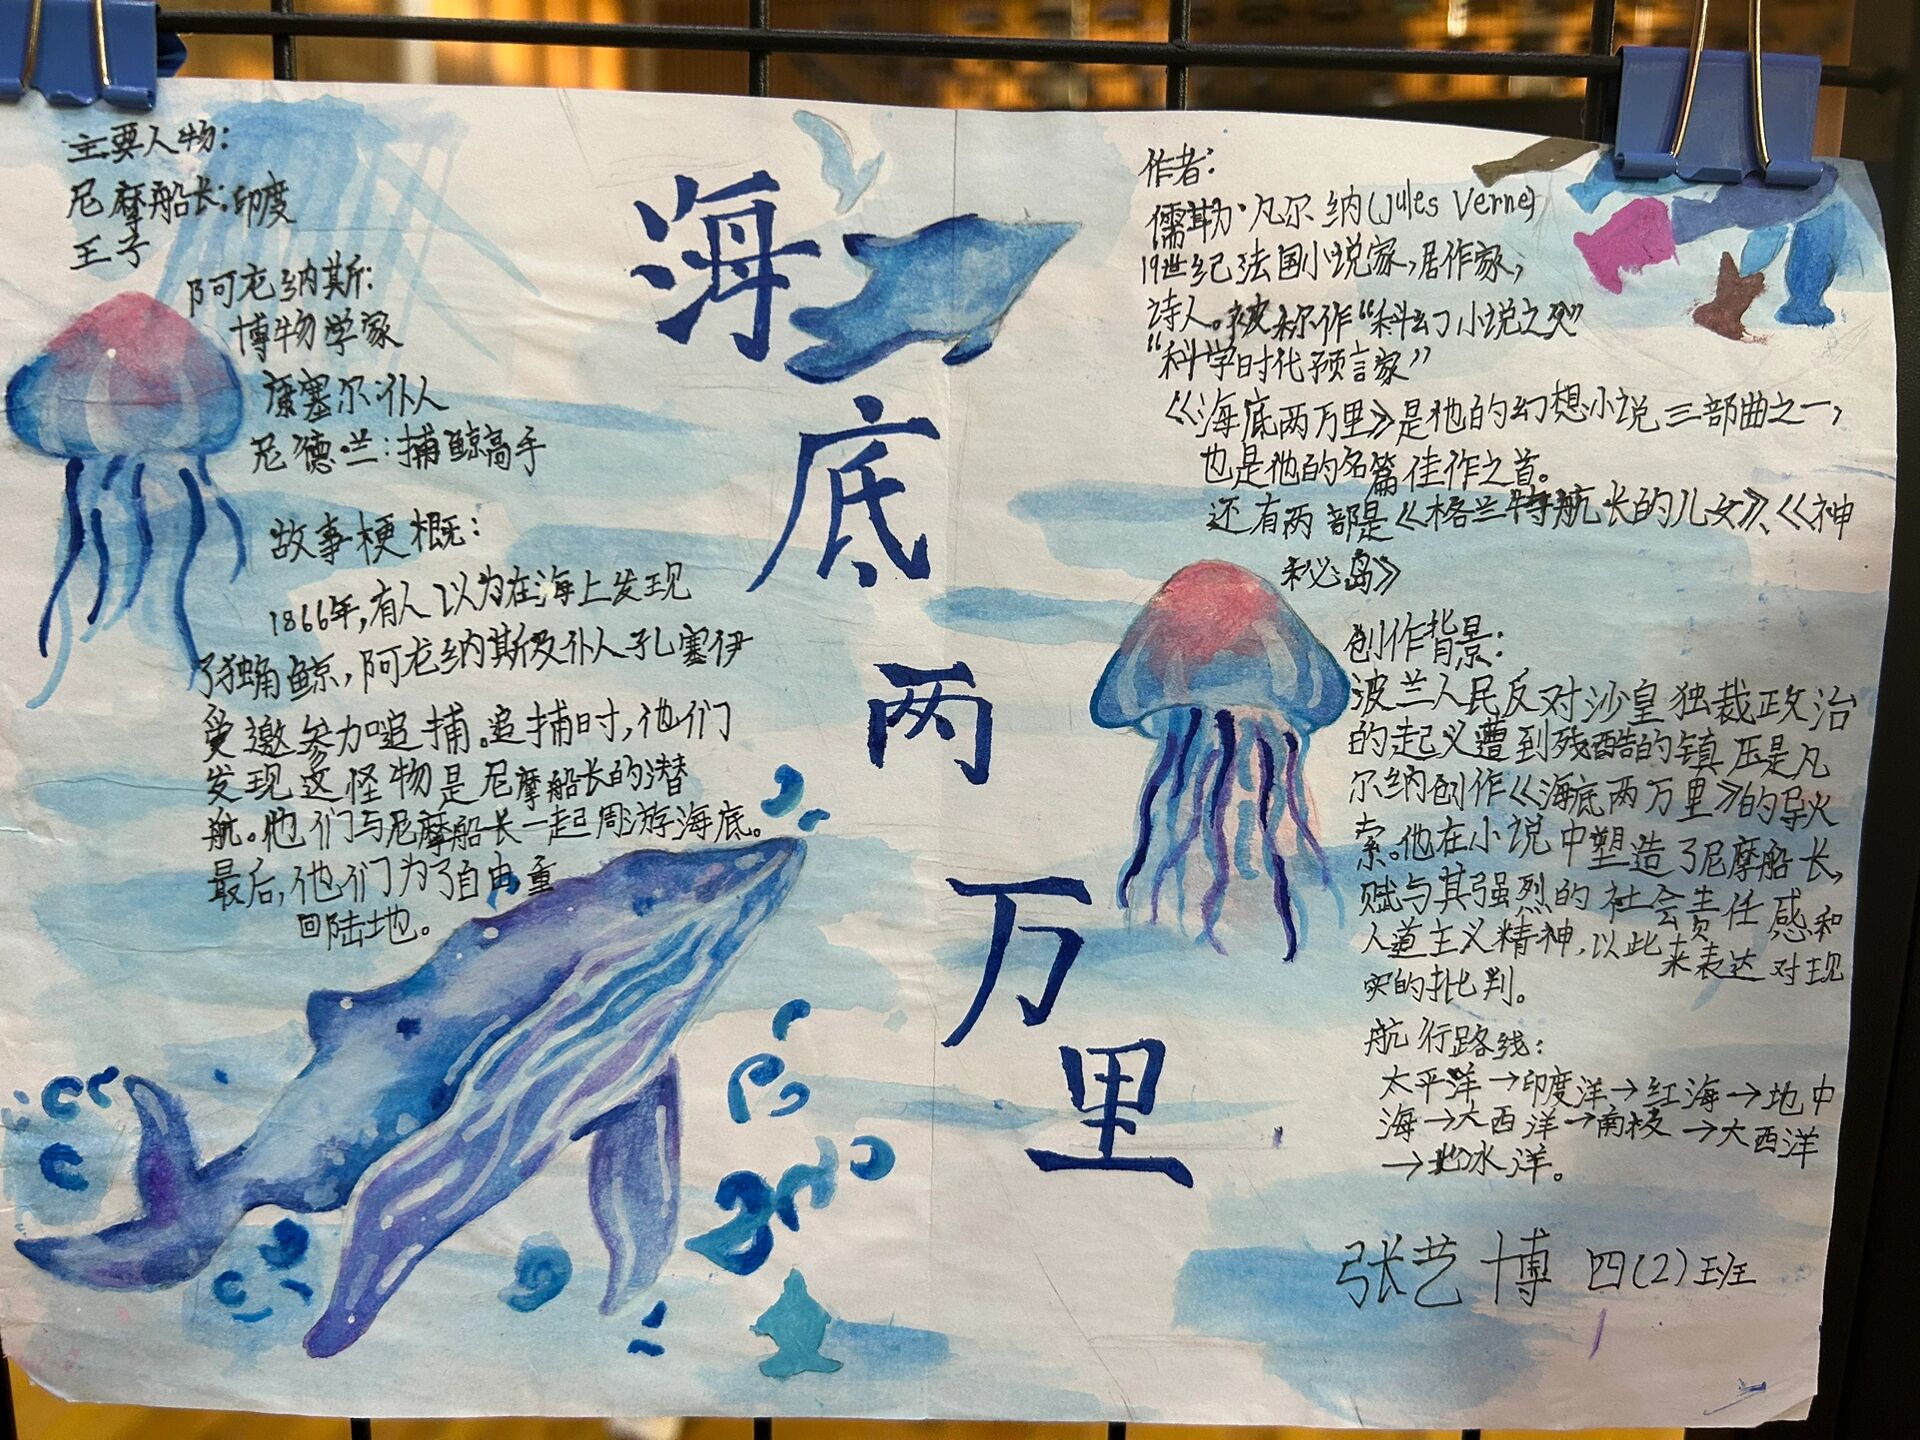 主要人物:
尼摩船长:印度
王子
阿龙纳斯:
博物学家
康塞尔:仆人
尼德·兰:捕鲸高手
故事梗概:
1866年,有人以为在海上发现
了独角鲸,阿龙纳斯及仆人孔塞伊
受邀参加追捕。追捕时,他们
发现这怪物是尼摩船长的潜
航。他们与尼摩船长一起周游海底。
最后,他们为了自由重
回陆地。
海
底
两
万
里
作者:
儒勒·凡尔纳(Jules Verne)
19世纪法国小说家,居作家,
诗人。被称作“科幻小说之父”
“科学时代预言家”
《海底两万里》是他的幻想小说三部曲之一,
也是他的名篇佳作之首。
还有两部是《格兰特航长的儿女》、《神
秘岛》
创作背景:
波兰人民反对沙皇独裁政治
的起义遭到残酷的镇压是凡
尔纳创作《海底两万里》的导火
索。他在小说中塑造了尼摩船长,
赋与其强烈的社会责任感和
人道主义精神,以此来表达对现
实的批判。
航行路线:
太平洋→印度洋→红海→地中
海→大西洋→南极→大西洋
→北冰洋。
张艺博 四(2)班